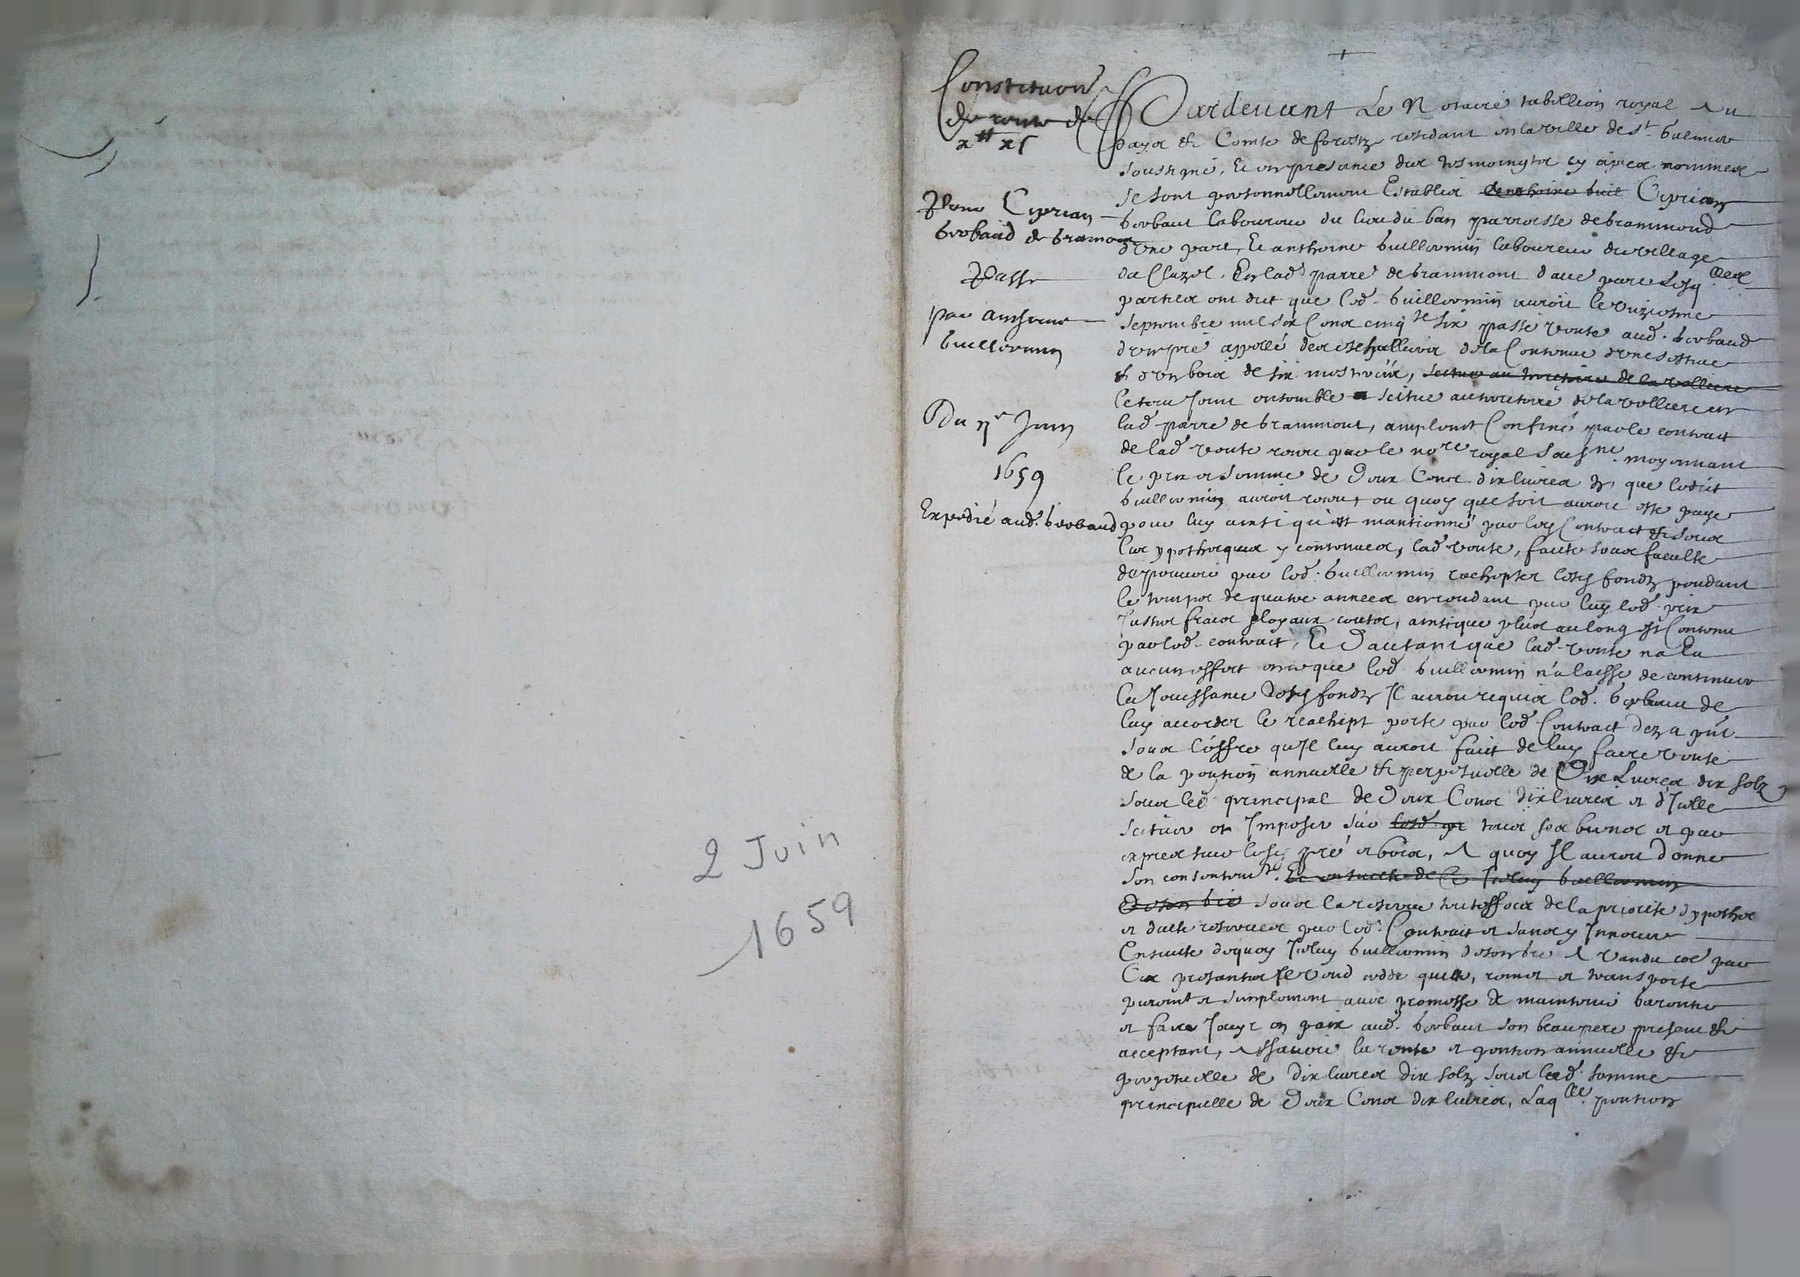 2 Juin
1659
Constitution
de rente de
x tt x s
Pour Ciprian
berbaud de bramont
Passe
par anthoine
buillermin
Du 2e Juin
1659
Expedié aud. berbaud
Pardevant Le Notaire tabellion royal Au
pays & Comte de forestz residant en la ville de St. Galmier
soussigné, Et en presance des tesmoingtz cy apres nommes
se sont personnellement Establis Ciprian
berbaud laboureur du lieu du ban parroisse de brammond
d'une part, Et anthoine buillermin laboureur du village
du Cluzel. En lad parre de brammont d'aue part Lesqlles
parties ont dit que led. buillermin auroit le
septembre mil six Cens cinqte six passé vente aud. berbaud
d'un pré appellé de la Contenue d'une
& d'un bois de six
le tout Joint ensemble scitue au territoire de la volliere en
lad parre de brammont, amplemt Confiné par le contract
de lad vente receu par le nore royal soussné moyennant
le prix et somme de Deux Cens dix livres que ledit
buillermin auroit receu, ou quoy que soit auroit este paye
pour luy ainsi qu'est mantionné par led Contract & soubz
les ypothecques y contenues, lad vente, faite soubz faculte
de pouvoir par led. buillermin rachepter lesd fondz pendant
le temps de quatre annees en rendant par luy led. prix
Justes fraix & loyaux coutz, ainsi que plus au long est Contenu
par led. contract, Et D'autant que lad. vente n'a Eu
aucun effect en ce que led. buillermin n'a laisse de continuer
la Jouissance desd fondz Il auroit requis led. berbaud de
luy accorder le reachept porté par led Contract
soubz l'offre qu'Il luy auroit faict de luy faire vente
de la pention annuelle & perpetuelle de Dix Livres dix solz
soubz led principal de Deux Cens dix livres et d'Icelle
scituer et Imposer sur tous ses biens et par
expres sur lesd pré et bois, A quoy Il auroit donne
son consentemt. Et ensuitte de ce Iceluy buillermin
soubz la reserve de la priorité d'ypotheque
et autres reservees par led. Contract et sans y Innover
Ensuitte dequoy Iceluy buillermin de son bon gré A vandu et par
Ces presantes vend cedde quitte, remet et transporte
purement & simplement avec promesse de maintenir garentir
et faire Jouyr en paix aud. berbaud son beau pere present &
acceptant, Assavoir la rente et pention annuelle &
perpetuelle de dix livres dix solz soubz lad. somme
principalle de Deux Cens dix livres, Laqlle pention